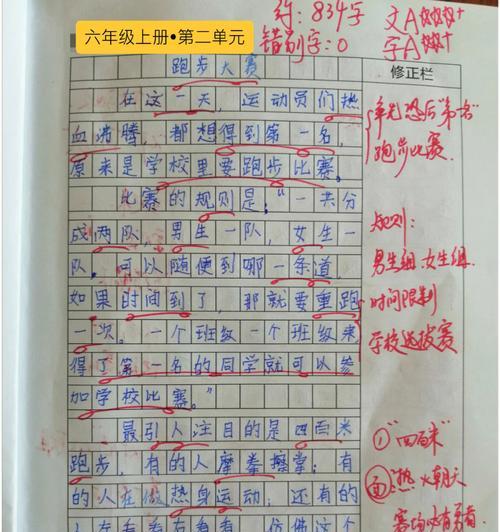 约：834字
错别字：0
文A
字A
六年级上册•第二单元
跑步大赛
修正栏
在这一天，运动员们热
血沸腾，都想得到第一名，
原来是学校里要跑步比赛。
比赛的规则是：“一共分
成两队，男生一队，女生一
队。可以随便到哪一条道，
如果时间到了，那就要重跑
一次。一个班级一个班级来，
得了第一名的同学就可以参
加学校比赛。”
最引人注目的是四百米
跑步，有的人摩拳擦掌；有
的人在做热身运动；还有的
人左看看右看看，仿佛这个
争先恐后“第一名”
跑步比赛
规则：
男生组.女生组
时间限制
学校选拔赛
①“四百米”
“热火朝天